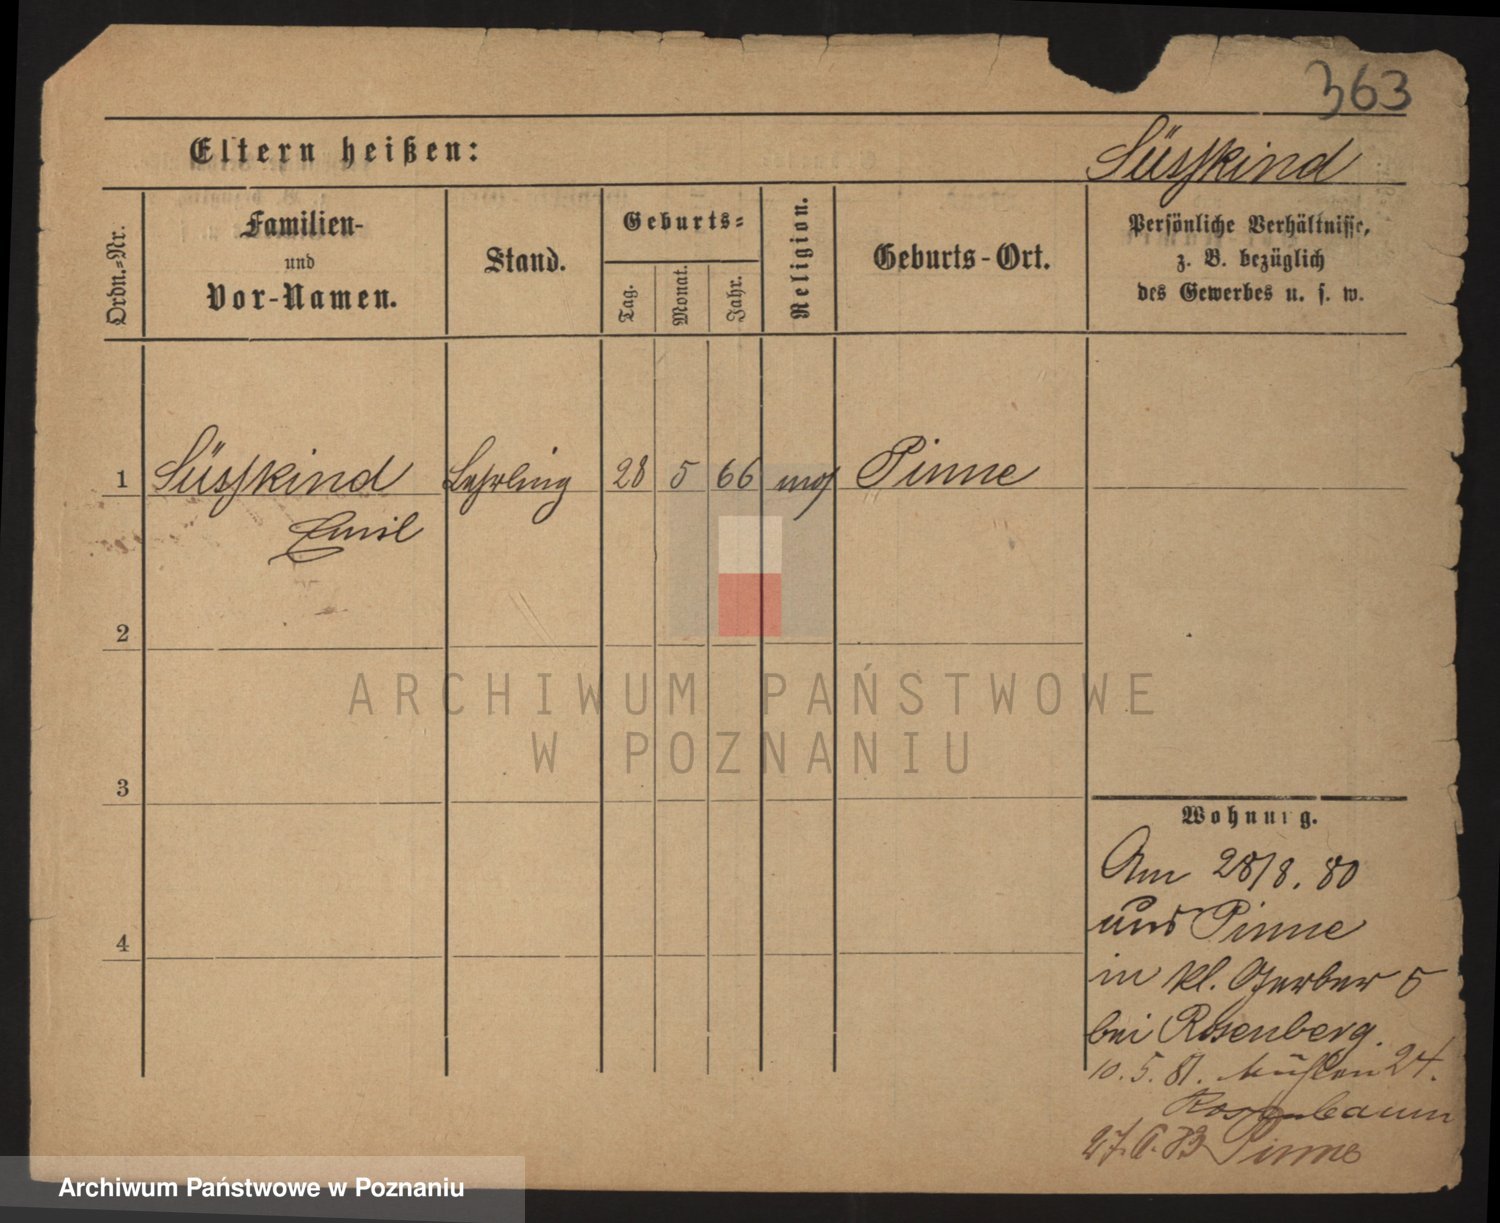 363
Eltern heißen:
Süsskind
Ordn.-Nr.
Familien-
und
Vor-Namen.
Stand.
Geburts-
Tag.
Monat.
Jahr.
Religion.
Geburts-Ort.
Persönliche Verhältnisse,
z. B. bezüglich
des Gewerbes u. s. w.
1 Süsskind Lehrling 28 5 66 mos Pinne
Emil
2
3
4
ARCHIWUM PAŃSTWOWE
W POZNANIU
Wohnung.
Am 28/8. 80
aus Pinne
in kl. Gerber 5
bei Rosenberg.
10. 5. 81. Mühlen 24.
Rosenbaum
27. 6. 83 Pinne
Archiwum Państwowe w Poznaniu